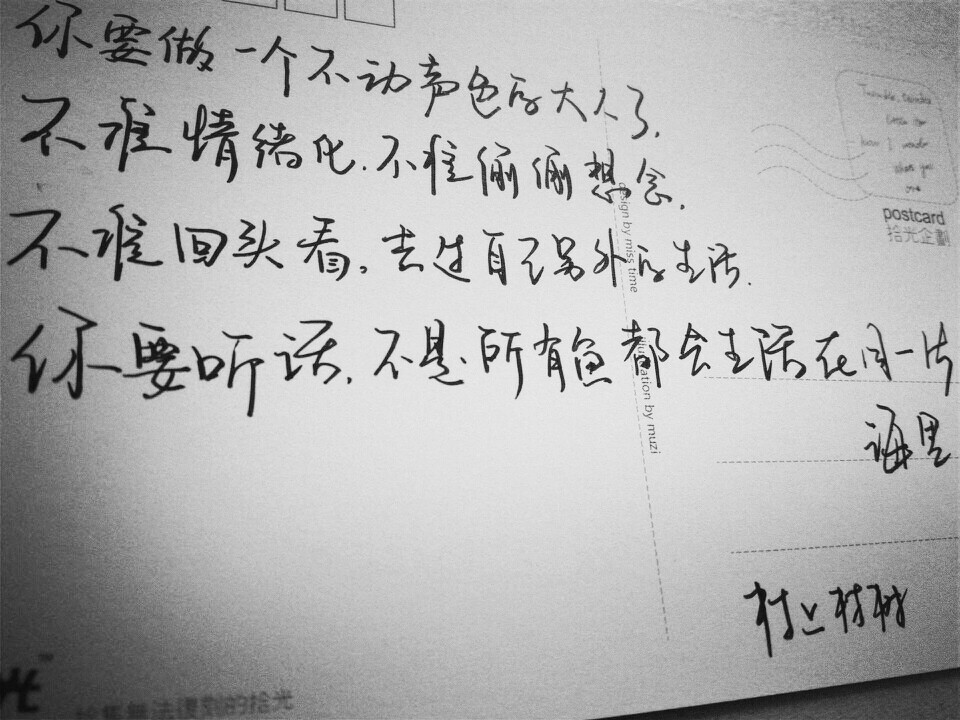 你要做一个不动声色的大人了.
不准情绪化.不准偷偷想念.
不准回头看.去过自己另外的生活.
你要听话.不是所有鱼都会生活在同一片
海里
村上村树
Twinkle, twinkle
little star
how I wonder
what you
are
postcard
拾光企劃
design by miss time
illustration by muzi
拾集無法復刻的拾光